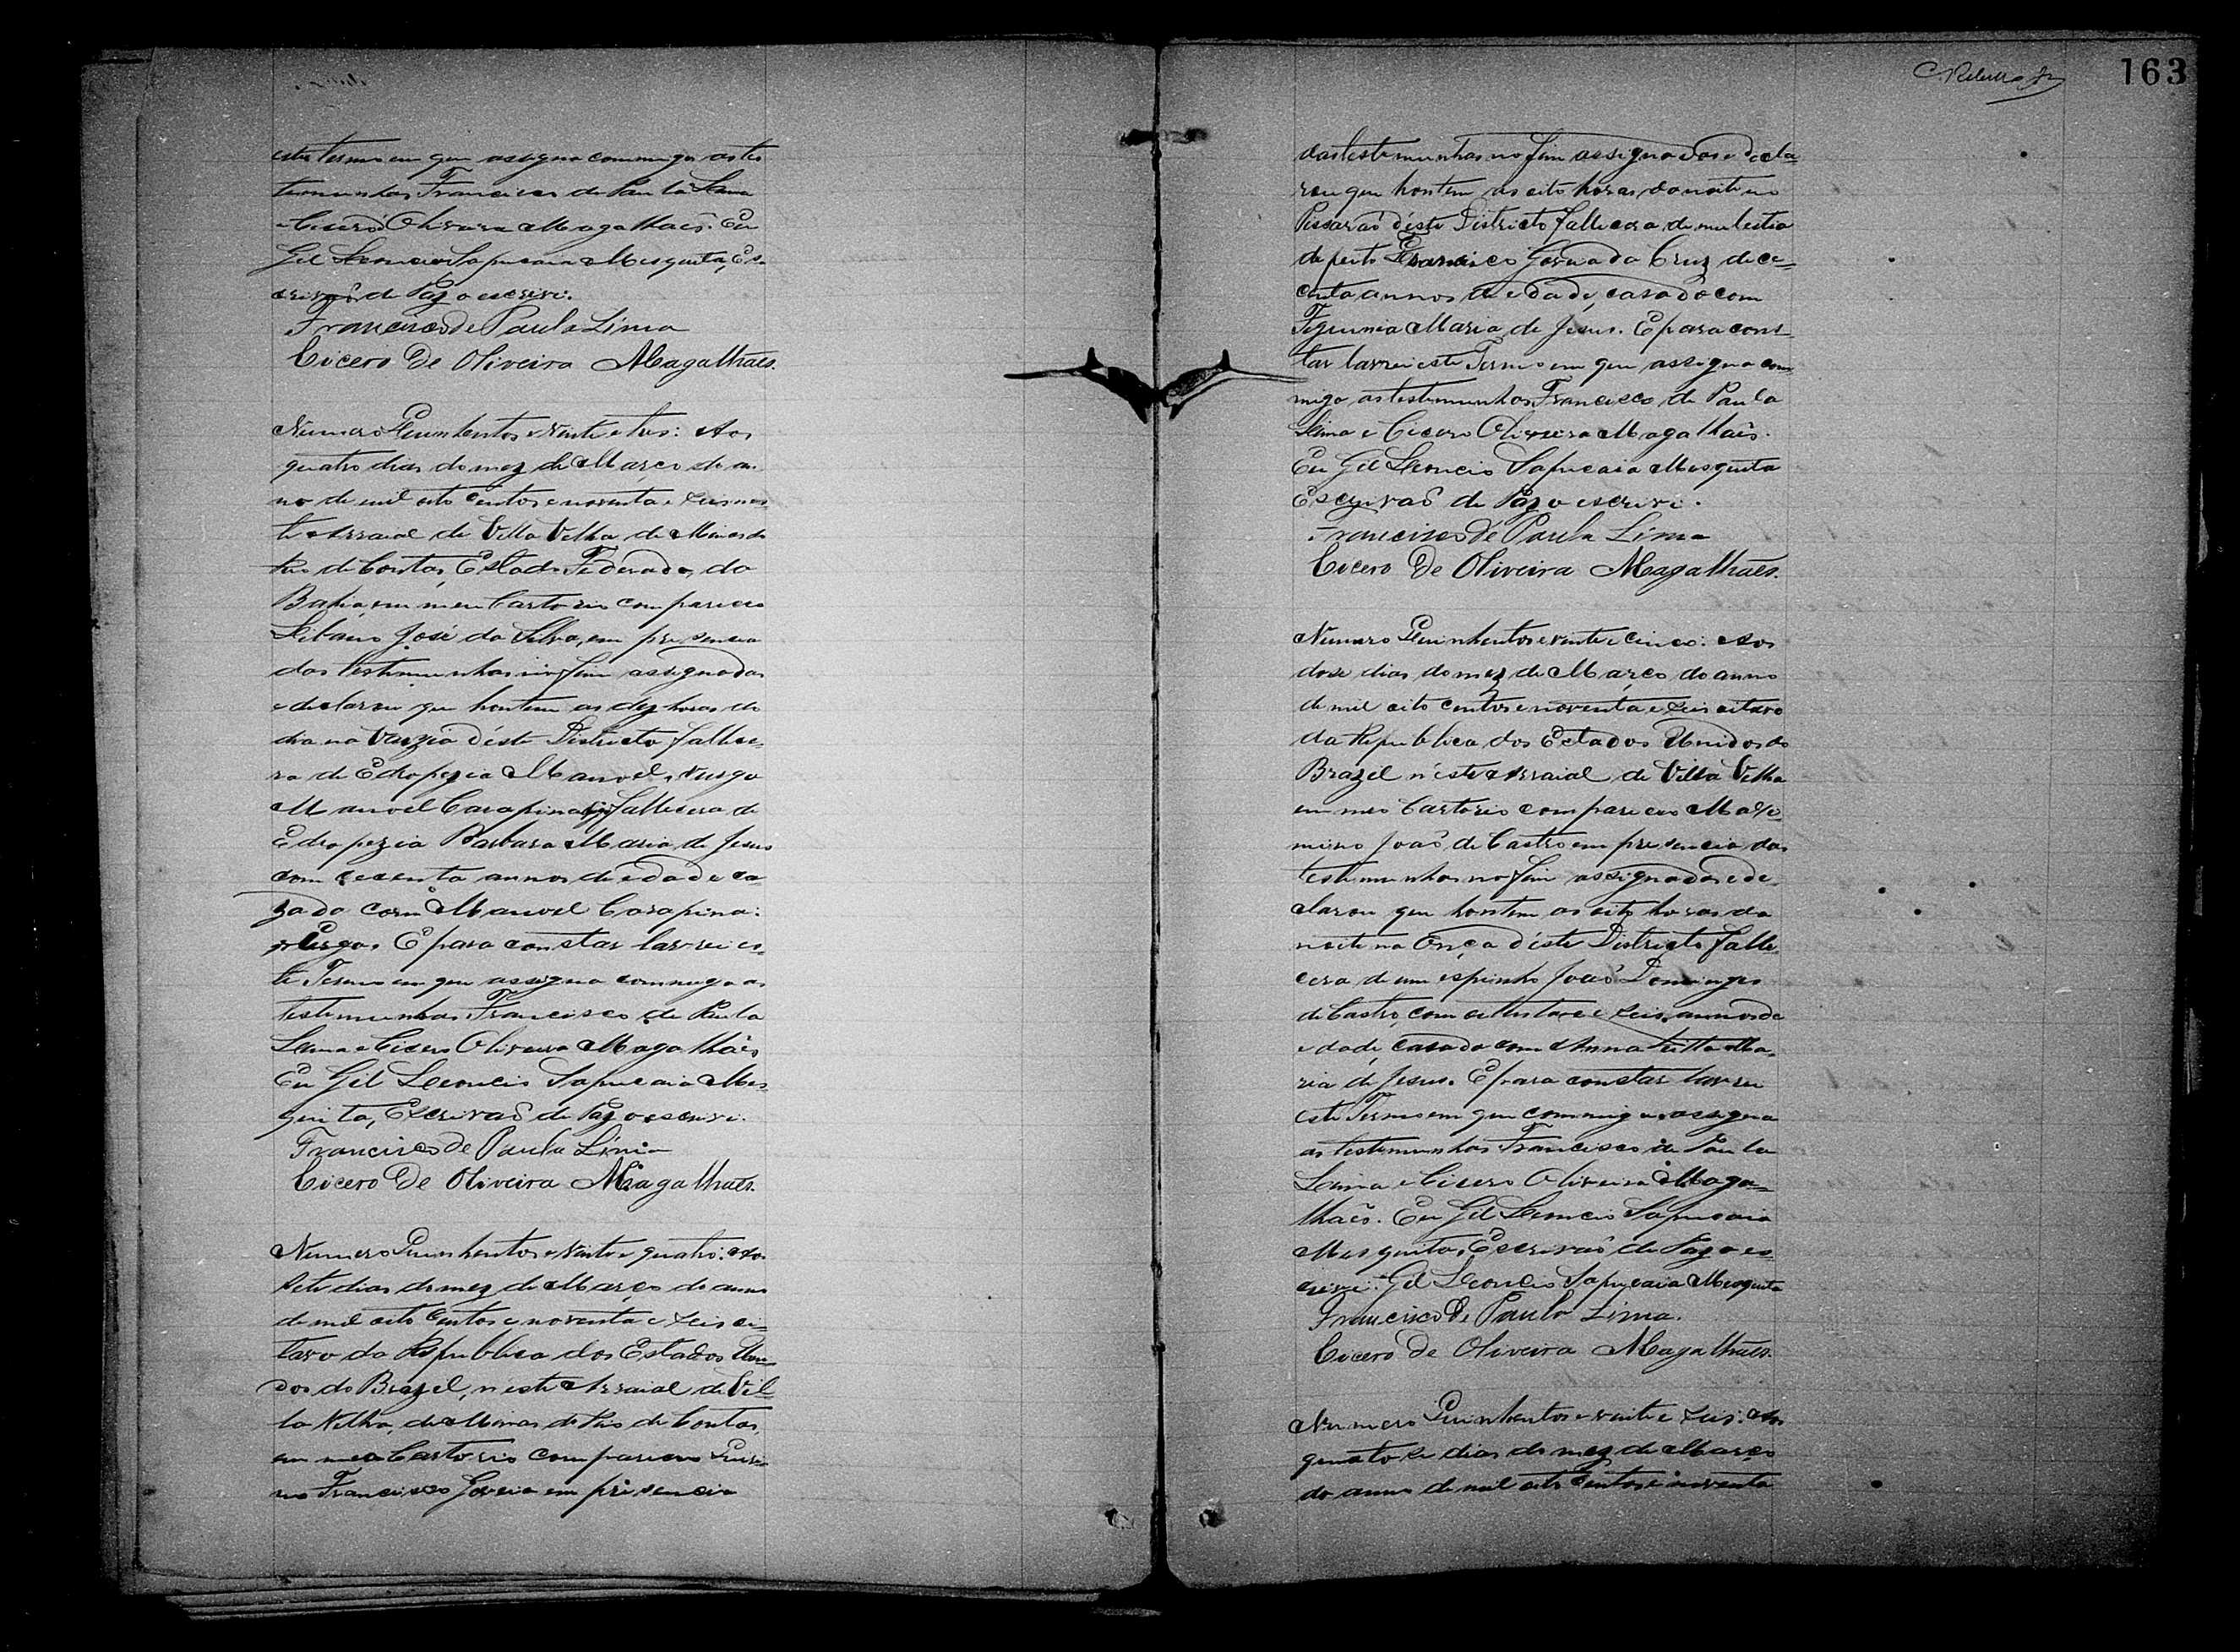 este termo em que assigna commigo as tes
temunhas Francisco de Paula Lima
e Cicero Oliveira Magalhaês. Eu
Gil Leoncio Sapucaia Mesquita, Es-
crivaõ de Paz o escrivi.
Francisco de Paula Lima
Cicero De Oliveira Magalhaes.
Numero Quinhentos e Vinte e tres: Aos
quatro dias do mez de Março do a-
no de mil oito centos e noventa e seis nes
te Arraial de Villa Velha de Minas do
Rio de Contas, Estado Federado, da
Bahia, em meu Cartorio compareceo
Libanio José da Silva, em presencia
das testemunhas no fim assignadas
e declarou que hontem as dez horas do
dia na Varzia d'éste Districto fallece-
ra de Edropezia Manoel, vurgo
Manoel Carapina, fallecera de
Edropezia Barbara Maria de Jesus
com cecenta annos de edade ca-
zada com Manoel Carapina:
vurgo. E para constar lavrei es-
te Termo em que assigna commigo as
testemunhas Francisco de Paula
Lima e Cicero Oliveira Magalhaês
Eu Gil Leoncio Sapucaia Mes
quita, Escrivaõ de Paz o escrivi.
Francisco de Paula Lima
Cicero De Oliveira Magalhaes.
Numero Quinhentos e Vinte e quatro: Aos
sete dias do mez de Março do anno
de mil oito centos e noventa e seis oi-
tavo da Republica dos Estados Uni-
dos do Brazil, n'éste Arraial de Vil-
la Velha, de Minas do Rio de Contas,
em meu Cartorio compareceo
Francisco Goveia em presencia
163
das testemunhas no fim assignadas e decla-
rou que hontem as oito horas da noite no
Pissaraõ d'éste Districto fallecera de mulestia
de peito Francisco Goveia da Cruz de ce-
centa annos de edade, casado com
Maria de Jesus. E para cons-
tar lavrei este Termo em que assigna com
migo as testemunhas Francisco de Paula
Lima e Cicero Oliveira Magalhaês.
Eu Gil Leoncio Sapucaia Mesquita
Escrivaõ de Paz o escrivi.
Francisco de Paula Lima
Cicero De Oliveira Magalhaes.
Numero Quinhentos e vinte e cinco: Aos
dose dias do mez de Março do anno
de mil oito centos e noventa e seis oitavo
da Republica dos Estados Unidos do
Brazil n'éste Arraial de Villa Velha
em meo Cartorio compareceo Maxi-
mino Joaõ de Castro em presencia das
testemunhas no fim assignadas e de-
clarou que hontem as oito horas da
noite na Onça d'éste Districto falle-
cera de um espinho Joaõ Domingos
de Castro, com oittenta e seis annos de
edade, casado com Anna Ritta Ma-
ria de Jesus. E para constar lavrei
este Termo em que commigo assigna
as testemunhas Francisco de Paula
Lima e Cicero Oliveira Maga-
lhaês. Eu Gil Leoncio Sapucaia
Mesquita, Escrivaõ de Paz o es
crivi. Gil Leoncio Sapucaia Mesquita
Francisco De Paula Lima.
Cicero De Oliveira Magalhaes.
Numero Quinhentos e vinte e seis: Aos
quatorze dias do mez de Março
do anno de mil oito centos e noventa